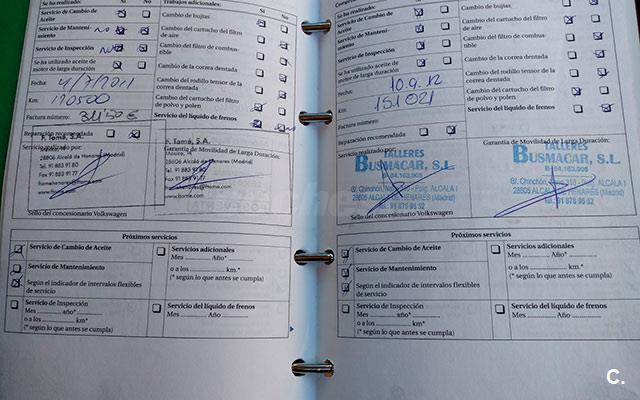 Se ha realizado: Sí No
Servicio de Cambio de Aceite
Servicio de Manteni-
miento
Servicio de Inspección
Se ha utilizado aceite de
motor de larga duración
Fecha: 4/7/2011
Km: 120500
Factura número: 311'50 €
Reparación recomendada
Servicio realizado por:
F. Tomé, S.A.
28806 Alcalá de Henares (Madrid)
Tel. 91 883 91 80
Fax 91 883 91 77
Sello del concesionario Volkswagen
Trabajos adicionales:
Sí No
Cambio de bujías
Cambio del cartucho del filtro
de aire
Cambio del filtro de combus-
tible
Cambio de la correa dentada
Cambio del rodillo tensor de la
correa dentada
Cambio del cartucho del filtro
de polvo y polen
Servicio del líquido de frenos
Garantía de Movilidad de Larga Duración:
F. Tomé, S.A.
28806 Alcalá de Henares (Madrid)
Tel. 91 883 91 80
Fax 91 883 91 77
Próximos servicios
Servicio de Cambio de Aceite
Servicio de Mantenimiento
Según el indicador de intervalos flexibles
de servicio
Servicio de Inspección
Mes ........... año*
o a los ............ km*
(* según lo que antes se cumpla)
Servicios adicionales
Mes ............ Año*
o a los .................. km.*
(* según lo que antes se cumpla)
Servicio del líquido de frenos
Mes ............ Año
Se ha realizado:
Servicio de Cambio de
Aceite
Servicio de Manteni-
miento
Servicio de Inspección
Se ha utilizado aceite de
motor de larga duración
Fecha: 10.9.12
Km: 151021
Factura número:
Reparación recomendada
Servicio realizado por:
TALLERES
BUSMACAR, S.L.
28805 ALCALA DE HENARES (Madrid)
Sello del concesionario Volkswagen
Cambio de bujías
Cambio del cartucho del filtro
de aire
Cambio del filtro de combus-
tible
Cambio de la correa dentada
Cambio del rodillo tensor de la
correa dentada
Cambio del cartucho del filtro
de polvo y polen
Servicio del líquido de frenos
Garantía de Movilidad de Larga Duración:
TALLERES
BUSMACAR, S.L.
28805 ALCALA DE HENARES (Madrid)
Próximos servicios
Servicio de Cambio de Aceite
Servicio de Mantenimiento
Según el indicador de intervalos flexibles
de servicio
Servicio de Inspección
Mes ............ año*
o a los ............ km*
(* según lo que antes se cumpla)
Servicios adicionales
Mes ............ Año*
o a los .................. km.*
(* según lo que antes se cumpla)
Servicio del líquido de frenos
Mes ............ Año
C.